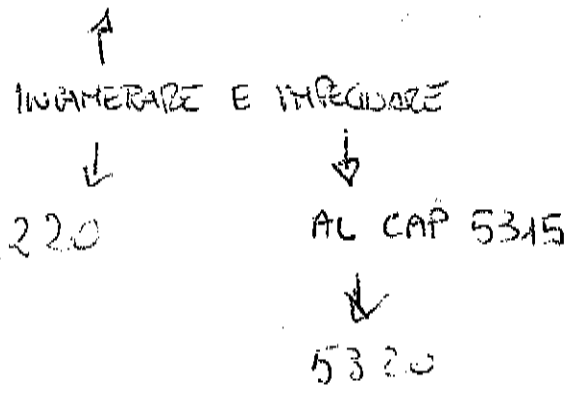 ↑
INCAMERARE E IMPEGNARE
↓ ↓
220 AL CAP 5315
↓
5320